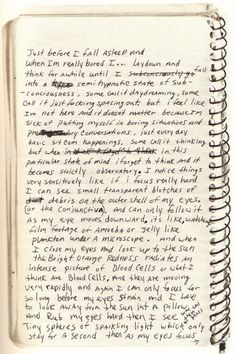 Just before I fall asleep and
when Im really bored I... laydown and
think for awhile until I subconsciously fall
into a semi hypnotic state of sub-
conciousness, some call it daydreaming, some
call it just fucking spacing out but i feel like
Im not here and it doesnt matter because Im
sick of putting myself in boring situations and
conversations, just everyday
basic sitcom happenings, some call it thinking
but when in this
particular state of mind i forget to think and it
becomes strictly observatory. I notice things
very sensitively like if I focus really hard
I can see small transparent blotches of
debris on the outer shell of my eyes
(or the conjunctiva). and can only follow it
as my eye moves downward, its like watching
film footage of amoeba or Jelly like
plankton under a microscope. and when
I close my eyes and look up to the Sun
the Bright Orange Redness radiates an
intense picture of Blood cells or what I
think are Blood Cells. and they are moving
very rapidly and again I can only focus for
so long before my eyes strain and I have
to look away from the sun into a pillow
and Rub my eyes hard then I see
Tiny spheres of sparkling light which only
stay for a second then as my eyes focus